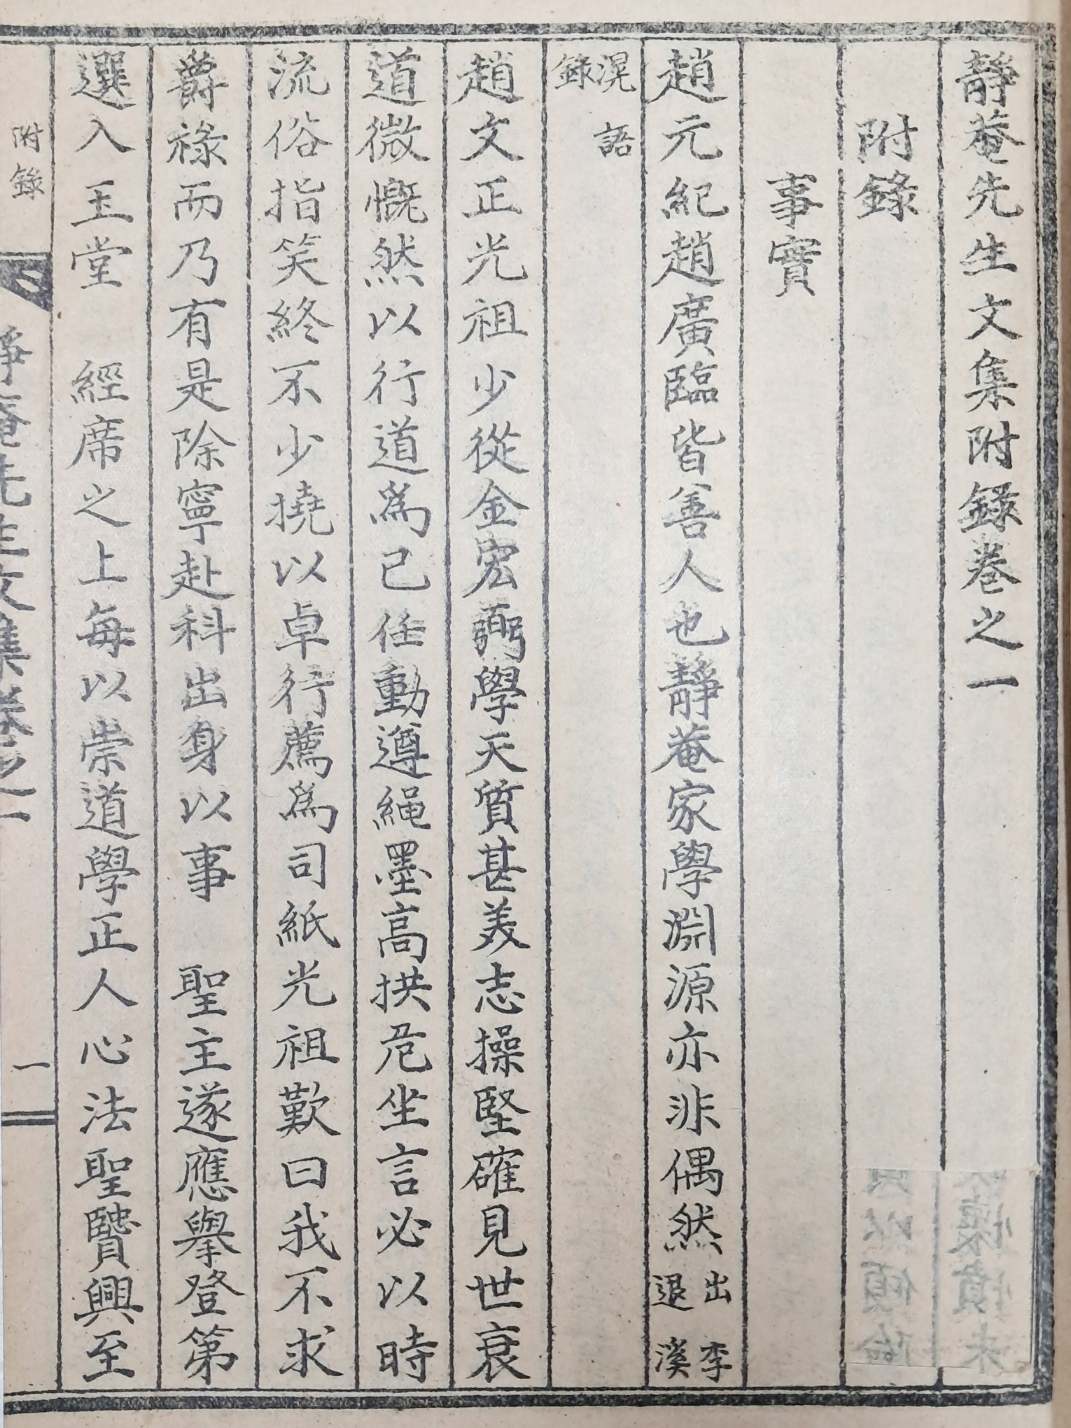 靜菴先生文集附錄卷之一
附錄
事實
趙元紀趙廣臨皆善人也靜菴家學淵源亦非偶然出李退溪
滉語錄
趙文正光祖少從金宏弼學天質甚美志操堅確見世衰
道微慨然以行道爲己任動遵繩墨高拱危坐言必以時
流俗指笑終不少撓以卓行薦爲司紙光祖歎曰我不求
爵祿而乃有是除寧赴科出身以事 聖主遂應擧登第
選入玉堂 經席之上每以崇道學正人心法聖賢興至
附錄
靜菴先生文集卷之一
一